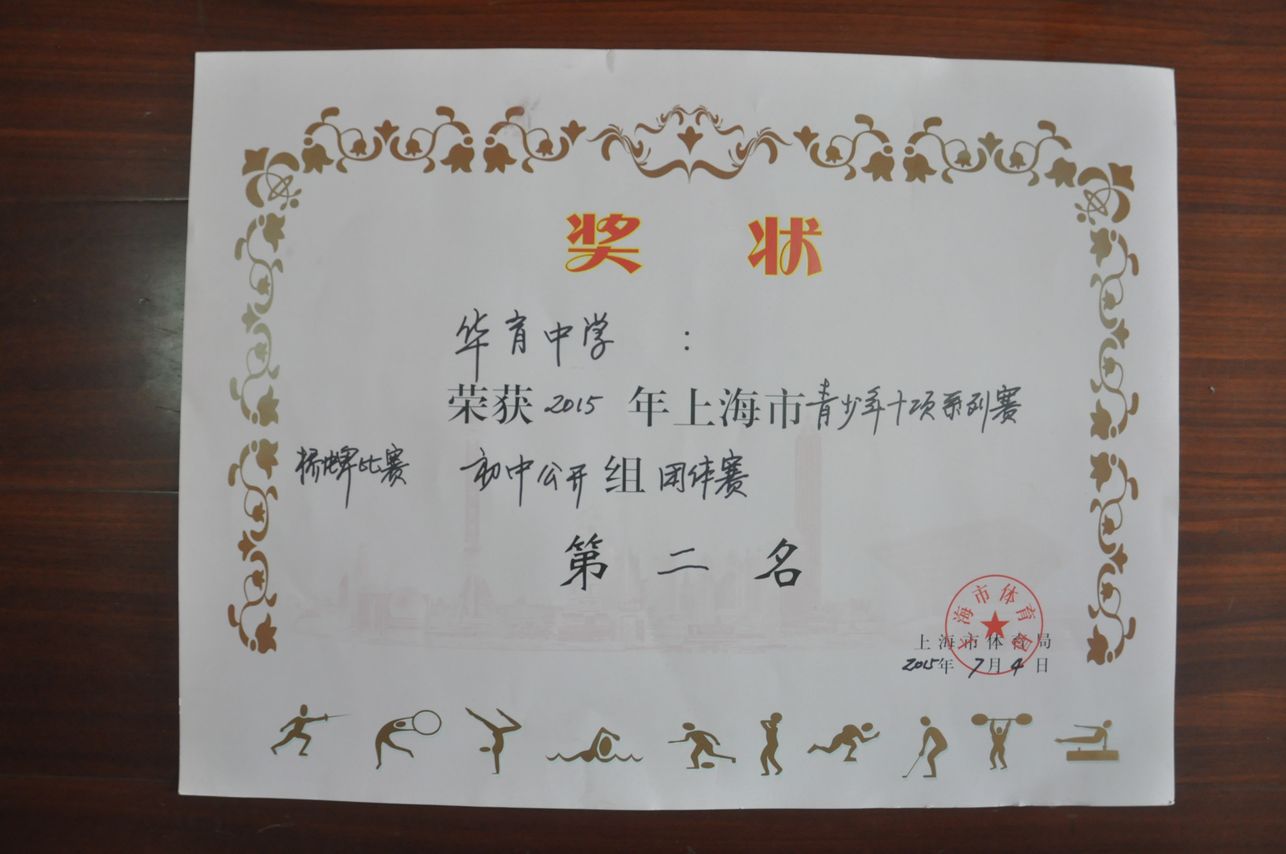 奖 状
华育中学 :
荣获 2015 年上海市青少年十项系列赛
桥牌比赛 初中公开组团体赛
第 二 名
上海市体育局
上海市体育局
2015年 7月 4日